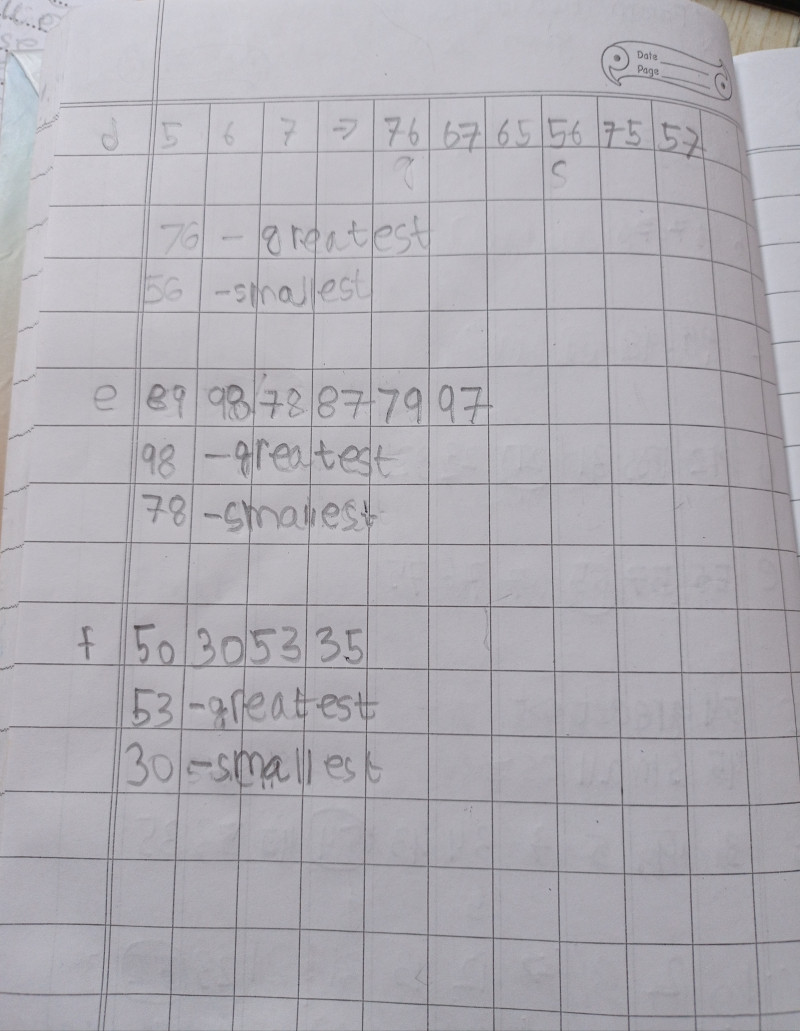 Date
Page
d 5 6 7 → 76 67 65 56 75 57
g s
76 - greatest
56 - smallest
e 89 98 78 87 79 97
98 - greatest
78 - smallest
f 50 30 53 35
53 - greatest
30 - smallest